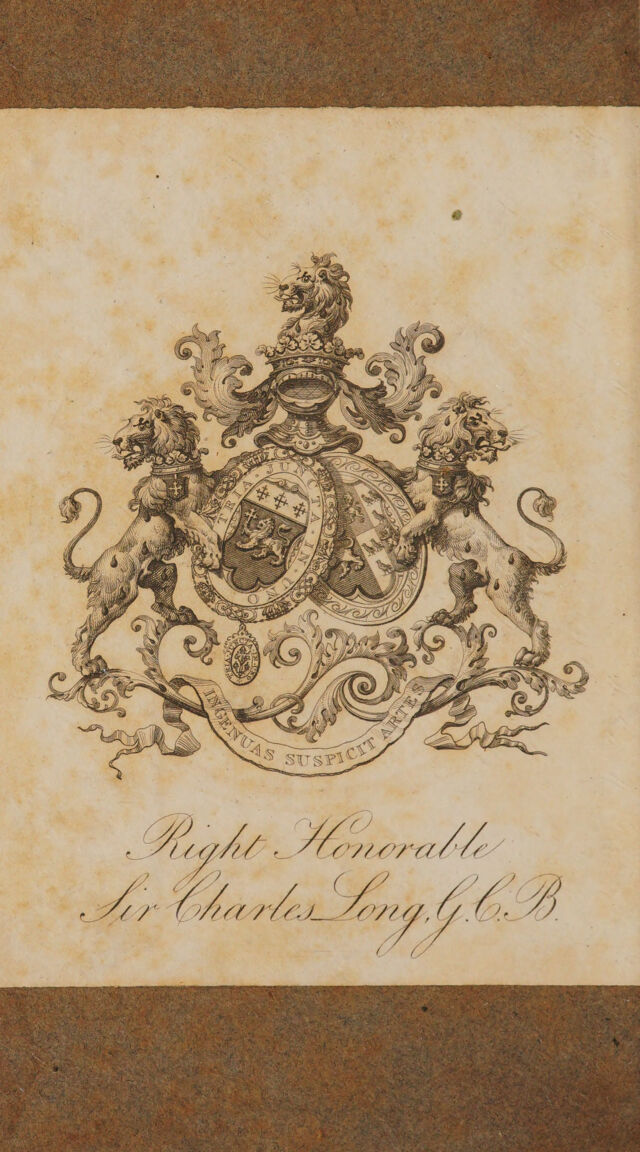 TRIA JUNCTA IN UNO
INGENUAS SUSPICIT ARTES
Right Honorable
Sir Charles Long, G.C.B.